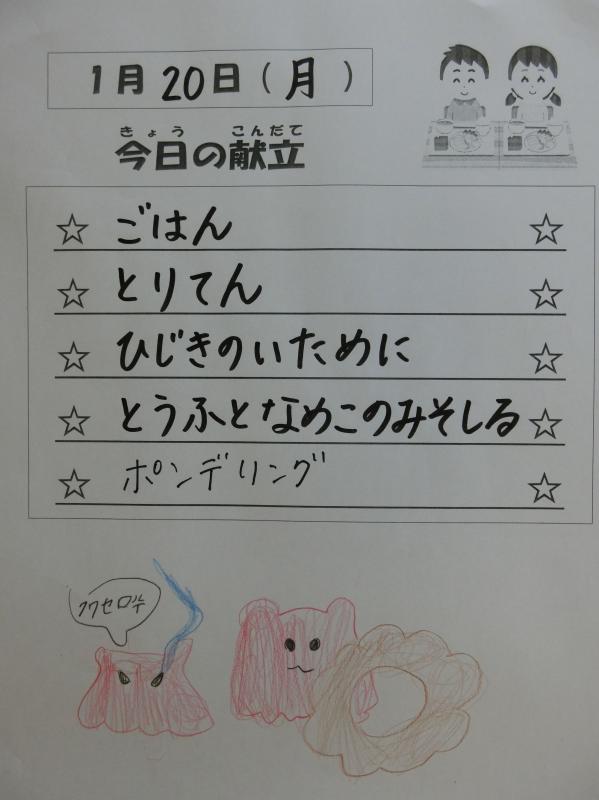 1月20日(月)
きょう こんだて
今日の献立
☆ ごはん ☆
☆ とりてん ☆
☆ ひじきのいために ☆
☆ とうふとなめこのみそしる ☆
☆ ポンデリング ☆